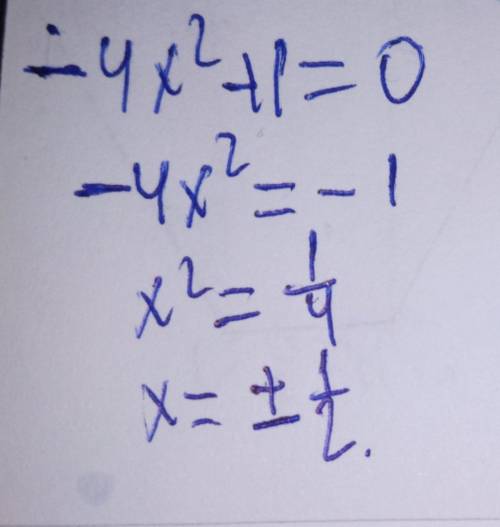 -4x² + 1 = 0
-4x² = -1
x² = 1/4
x = ± 1/2.